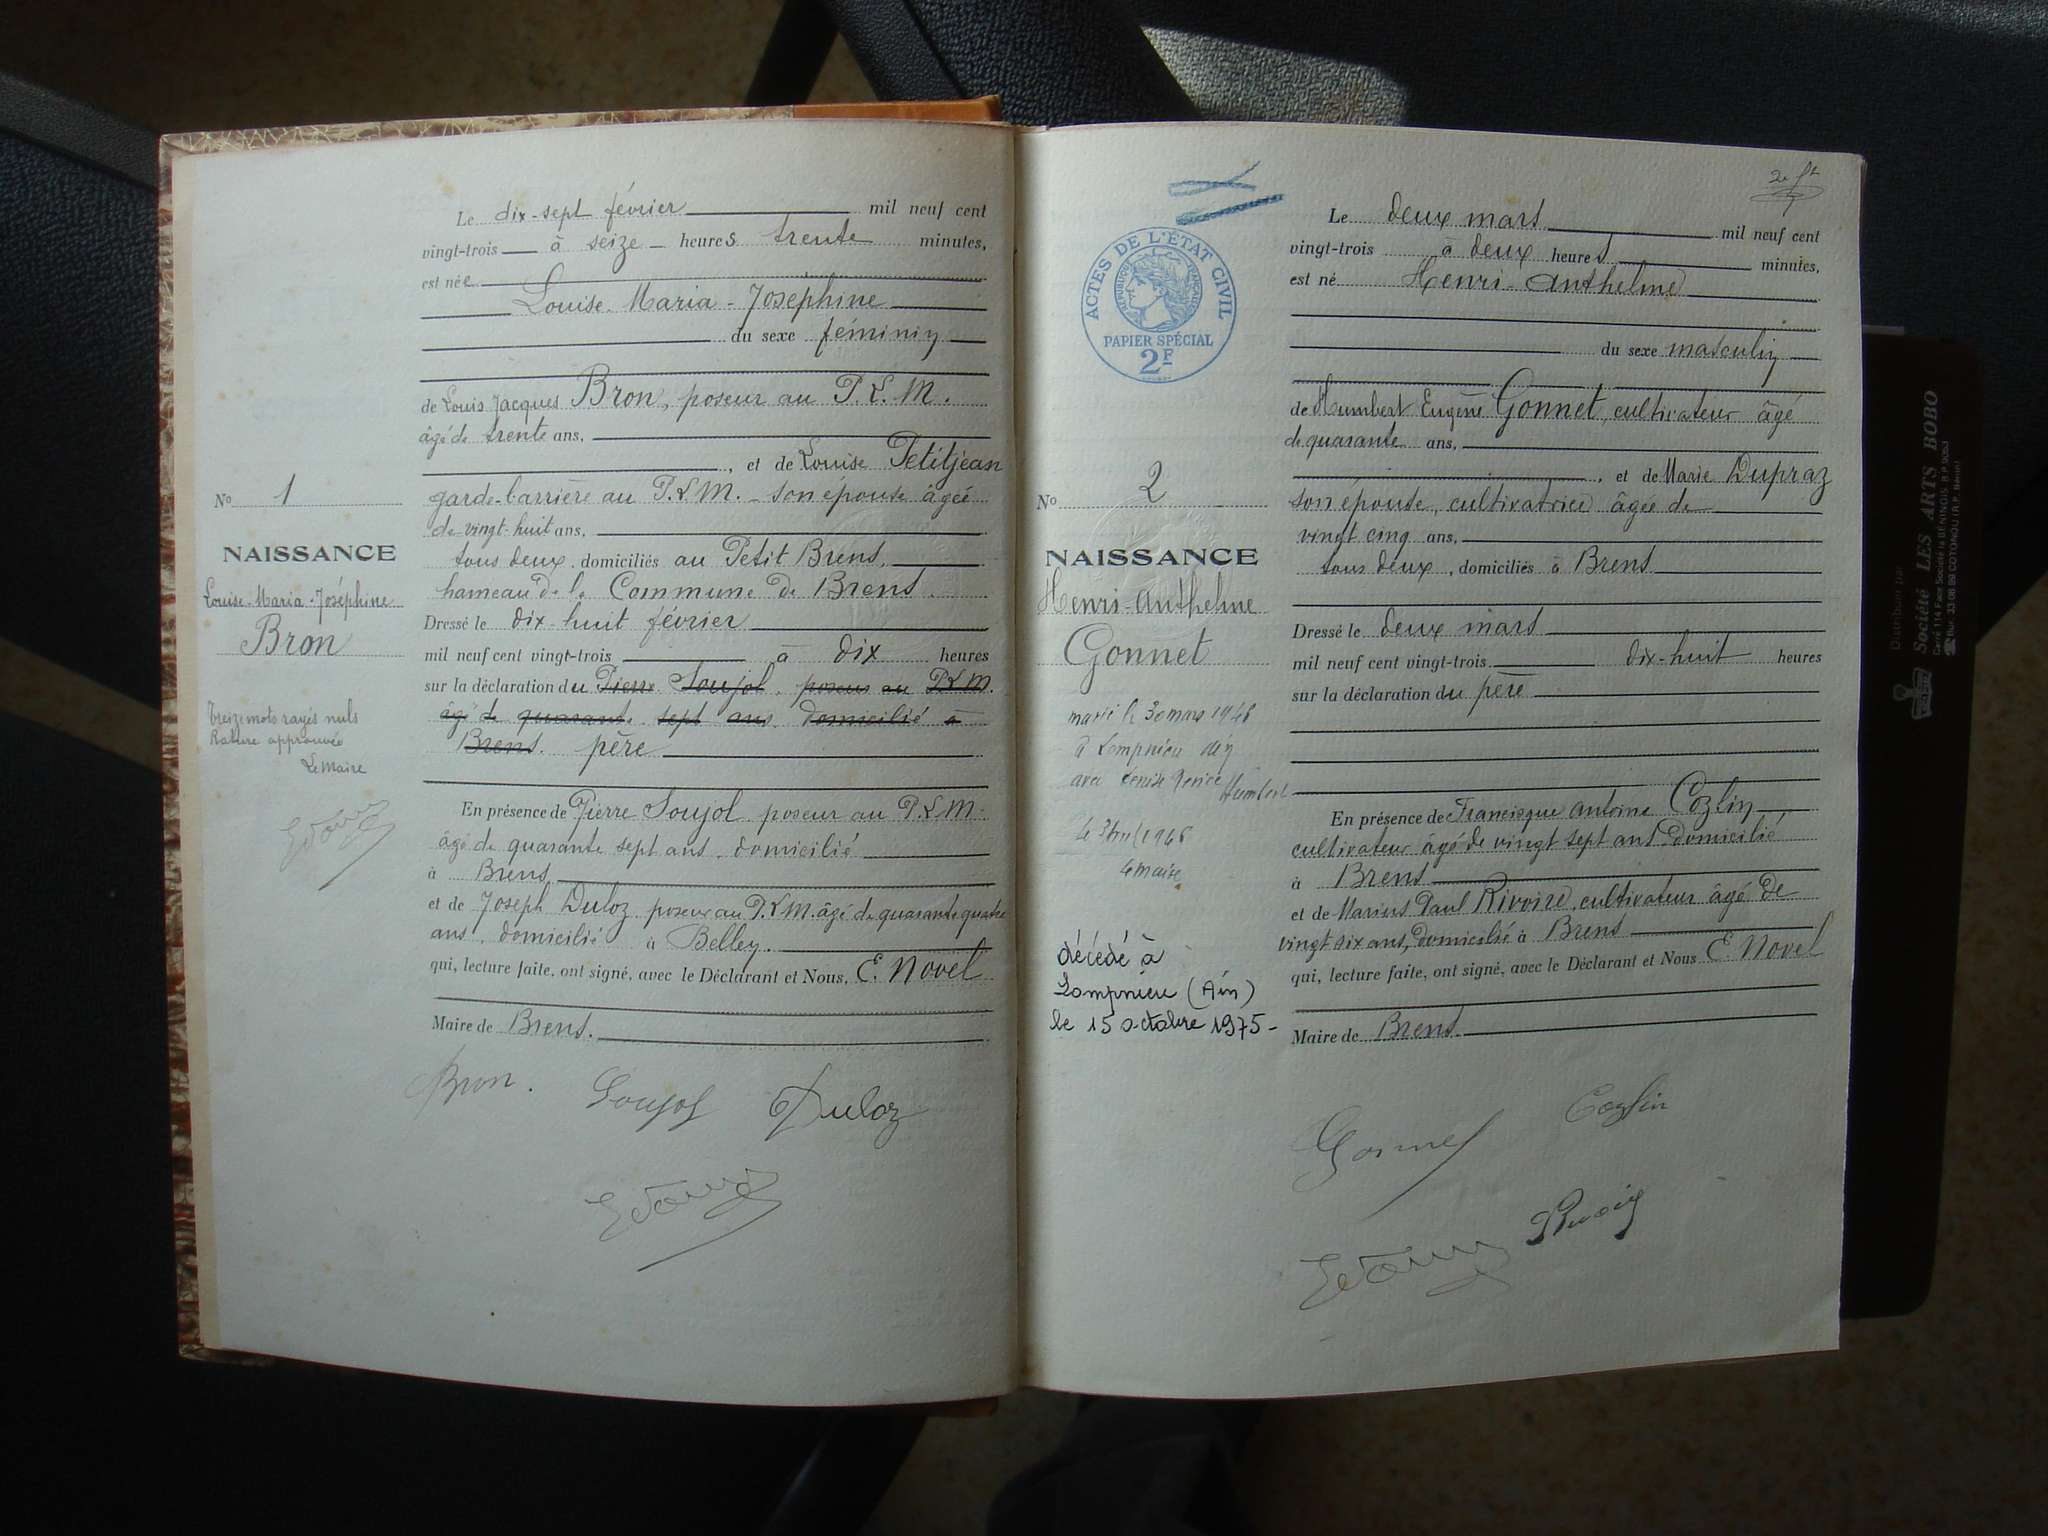 Le dix-sept février mil neuf cent
vingt-trois à seize heures trente minutes,
est née
Louise-Maria-Joséphine
du sexe féminin
de Louis Jacques Bron, poseur au P.L.M.
âgé de trente ans,
, et de Louise Petitjean
garde-barrière au P.L.M. - son épouse âgée
de vingt-huit ans,
tous deux, domiciliés au Petit Brens,
hameau de la Commune de Brens.
Dressé le dix-huit février
mil neuf cent vingt-trois à dix heures
sur la déclaration du Pierre Soujol, poseur au P.L.M.
âgé de quarante sept ans domicilié à
Brens. père
En présence de Pierre Soujol poseur au P.L.M-
âgé de quarante sept ans, domicilié
à Brens
et de Joseph Duloz poseur au P.L.M. âgé de quarante quatre
ans, domicilié à Belley.
qui, lecture faite, ont signé, avec le Déclarant et Nous, E. Novel
Maire de Brens.
Bron. Soujol Duloz
No 1
NAISSANCE
Louise-Maria-Joséphine
Bron
Treize mots rayés nuls
Rature approuvée
Le Maire
2e ft
Le deux mars mil neuf cent
vingt-trois à deux heures minutes,
est né Henri-Anthelme
du sexe masculin
de Humbert Eugène Gonnet, cultivateur âgé
de quarante ans,
, et de Marie Dupraz
son épouse, cultivatrice âgée de
vingt cinq ans,
tous deux, domiciliés à Brens
Dressé le deux mars
mil neuf cent vingt-trois dix-huit heures
sur la déclaration du père
En présence de Francisque Antoine Cozlin
cultivateur âgé de vingt sept ans domicilié
à Brens
et de Marius Paul Rivoire, cultivateur âgé de
vingt six ans, domicilié à Brens
qui, lecture faite, ont signé, avec le Déclarant et Nous E. Novel
Maire de Brens.
Gonnet Cozlin
ACTES DE L'ÉTAT CIVIL
RÉPUBLIQUE FRANÇAISE
PAPIER SPÉCIAL
2F
No 2
NAISSANCE
Henri-Anthelme
Gonnet
marié le 30 mars 1946
à Lompnieu Ain
avec Denise Renée Humbert
le 3 avril 1946
le maire
décédé à
Lompnieu (Ain)
le 15 octobre 1975-
Distribué par
Société LES ARTS BOBO
Carré 114 Face Société la BÉNINOIS B.P 9053
Bur. 33 06 89 COTONOU (R.P. Bénin)